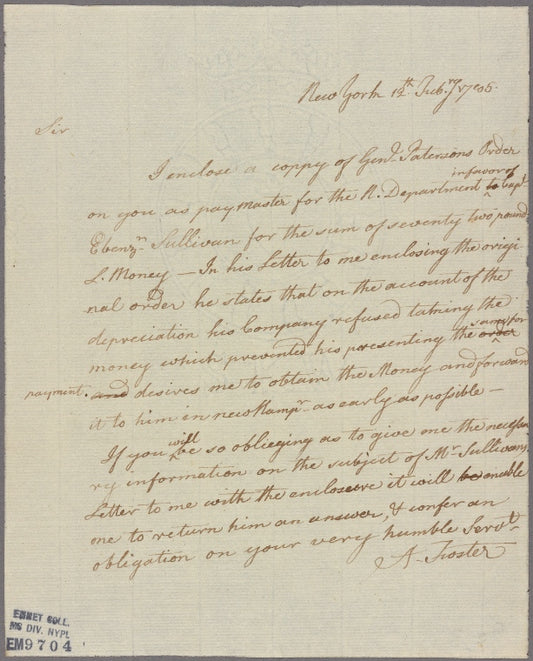 New York 12th Feb.ry 1795.
Sir
I enclose a coppy of Genl. Patersons Order
in favor of
on you as paymaster for the N. Department to Capt.
Ebenzr. Sullivan for the sum of seventy two pound
L. Money — In his Letter to me enclosing the origi-
nal order he states that on the account of the
depreciation his Company refused takning the
same for
money which prevented his presenting the order
payment. and desires me to obtain the Money and forward
it to him in newHampr. as early as possible —
will
If you be so obliegeing as to give me the necessa
ry information on the subject of Mr. Sullivans
Letter to me with the enclosere it will be enable
me to return him an answer, & confer an
obligation on your very humble Servt.
A. Foster
EMMET COLL.
MS DIV. NYPL
EM9704